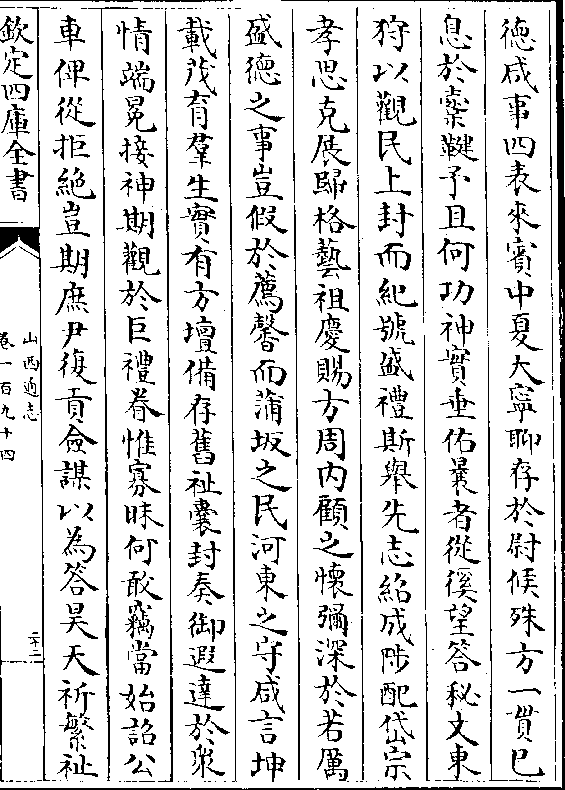 德咸事四表來賓中夏大寧聊存於尉候殊方一貫已
息於櫜鞬予且何功神實垂佑曩者從徯望答秘文東
狩以觀民上封而紀號盛禮斯舉先志紹成陟配岱宗
孝思克展歸格藝祖慶賜方周内顧之懷彌深於若厲
盛德之事豈假於薦馨而蒲坂之民河東之守咸言坤
載茂育羣生實有方壇備存舊祉囊封奏御遐達於衆
情端冕接神期觀於巨禮眷惟寡昧何敢竊當始詔公
車俾從拒絶豈期庶尹復貢僉謀以為答昊天祈繁祉
欽定四庫全書
山西通志
卷一百九十四
二十二